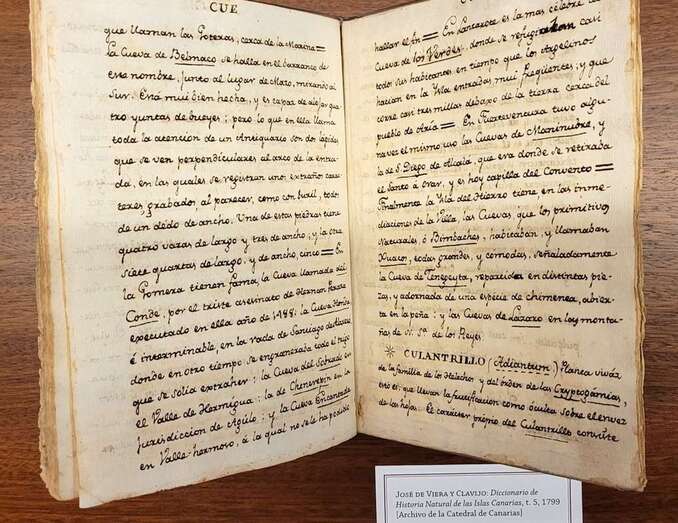 CUE
que llaman las Goteras, cerca de la Marina =
la Cueva de Belmaco se halla en el barranco de
este nombre, junto al lugar de Mazo, mirando al
Sur. Está mui bien hecha, y es capaz de alojar qua
tro yuntas de bueyes; pero lo que en ella llama
toda la atencion de un Antiquario son dos lápidas
que se ven perpendiculares al arco de la entra
da, en las quales se registran unos extraños carac
teres, grabados al parecer, como con buril, todos
de un dedo de ancho. Una de estas piedras tiene
quatro varas de largo, y tres de ancho; y la otra
siete quartas de largo, y de ancho, cinco = En
la Gomera tienen fama, la Cueva llamada del
Conde, por el triste asesinato de Hernan Peraza
executado en ella año de 1488: la Cueva Honda
é interminable, en la rada de Santiago
donde en otro tiempo se engraneraba todo el trigo
que se solía extraher: la Cueva del Sobrado en
el Valle de Hermigua: la de Cherepin en la
Jurisdiccion de Agulo: y la Cueva Encantada
en Valle-hermoso, á la qual no se le ha podido
hallar el fin = En Lanzarote es la mas célebre la
Cueva de los Verdes, donde se refugiaban casi
todos sus habitantes en tiempo que los Argelinos
hacían en la Isla entradas mui freqüentes; y que
corre casi tres millas debaxo de la tierra cerca del
pueblo de Aría = En Fuerteventura tuvo algu
na vez el mismo uso las Cuevas de Maninubre, y
la de S. Diego de Alcalá, que era donde se retiraba
el Santo á orar, y es hoy capilla del Convento =
Finalmente la Isla del Hierro tiene, en las inme
diaciones de la Villa, las Cuevas, que los primitivos
Naturales, ó Bimbaches, habitaban, y llamaban
Xuacos, todas grandes, y comodas, señaladamente
la Cueva de Teneseyta, repartida en distintas pie
zas, y adornada de una especie de chimenea, abier
ta en la peña: y las Cuevas de Lázaro en las monta
ñas de N. Sª de los Reyes
* CULANTRILLO (Adiantum) Planta viváz
de la familia de los Helechos y del órden de las Cryptogámias,
esto es: que llevan la fructificacion como óculta sobre el envez
de las hojas. El carácter propio del Culantrillo consiste
JOSÉ DE VIERA Y CLAVIJO: Diccionario de
Historia Natural de las Islas Canarias, t. 5, 1799
[Archivo de la Catedral de Canarias]